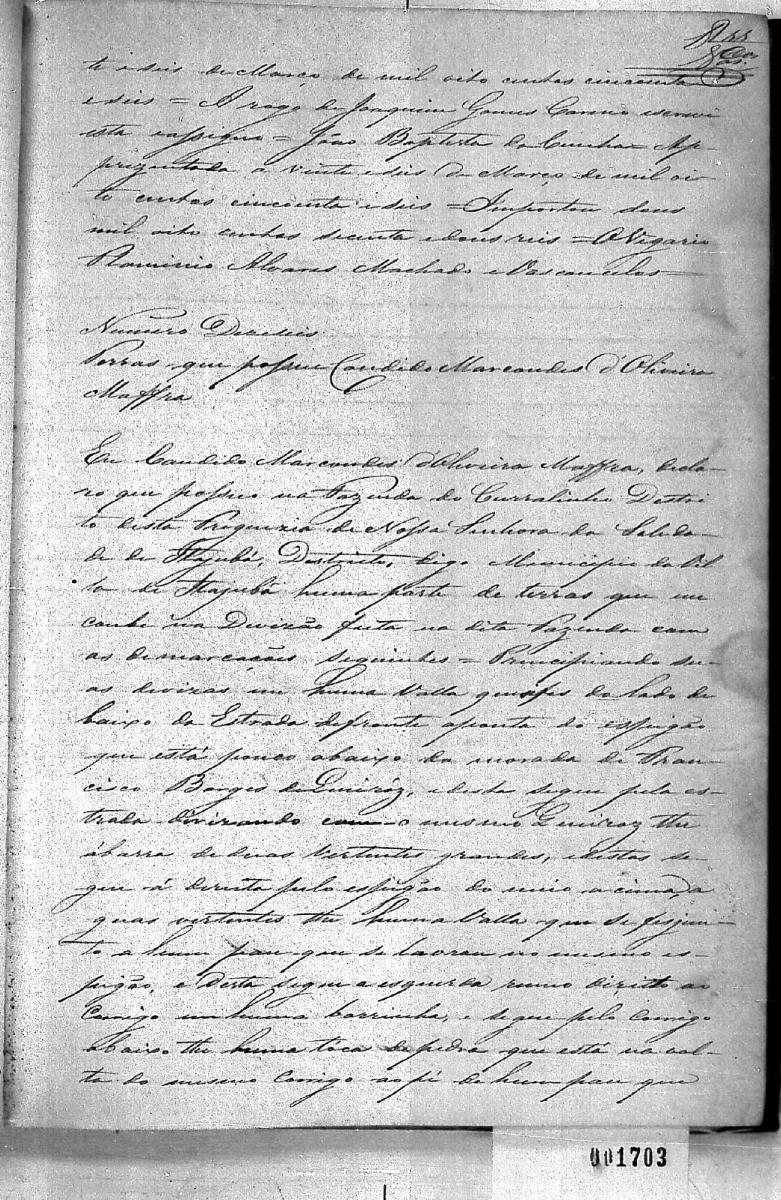 te e seis de Março de mil oito centos cincoenta
e seis = A rogo de Joaquim Gomes escrevi
esta e assignei = João Baptista da Cunha = Ap-
prezentada a vinte e seis de Março de mil oi-
to centos cincoenta e seis = Importou dous
mil oito centos secenta e dous reis = O Vigario
Alvares Machado e Vasconcelos =
Numero Dezeseis
Terras que possue Candido Marcondes d'Oliveira
Maffra
Eu Candido Marcondes d'Oliveira Maffra, decla-
ro que possuo na Fazenda do Curralinho Destri-
to desta Freguezia de Nossa Senhora da Soleda-
de de Itajubá, Destricto, digo Municipio da Vil-
la de Itajubá huma parte de terras que me
coube na Divizão feita na dita Fazenda com
as demarcações seguintes = Principiando su-
as divizas em huma Valla que se fes do lado de
baixo da Estrada defronte a ponta do espigão
que está pouco abaixo da morada de Fran-
cisco Borges de Queiróz, e desta segue pela es-
trada divizando com o mesmo Queiroz the
á barra de duas Vertentes grandes, e destas se-
gue á direita pelo espigão do meio a cima, a
guas vertentes the huma Valla que se fes jun-
to a hum pau que se lavrou no mesmo es-
pigão, e desta segue a esquerda rumo direito ao
Corrigo em huma barrinha, e segue pelo Corrigo
abaixo the huma tóca de pedra que está na vol-
ta do mesmo Corrigo ao pé de hum pau que
001703